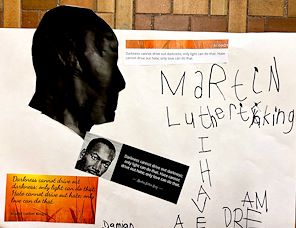 Darkness cannot drive out darkness; only light can do that. Hate
cannot drive out hate; only love can do that.
MaRtiN
Luther king
I
HAVE
A
DRE
AM
Darkness cannot drive out darkness;
only light can do that. Hate cannot
drive out hate; only love can do that.
Darkness cannot drive out
darkness; only light can do that.
Hate cannot drive out hate; only
love can do that.
Damian